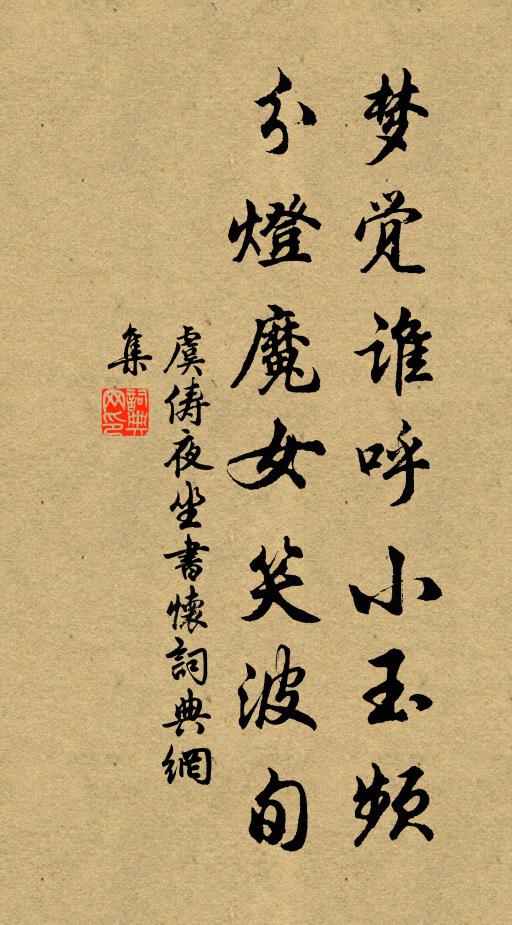 梦觉谁呼小玉频
分燈魔女笑波旬
虞俦夜坐書懷詞典網
集
詞典网印